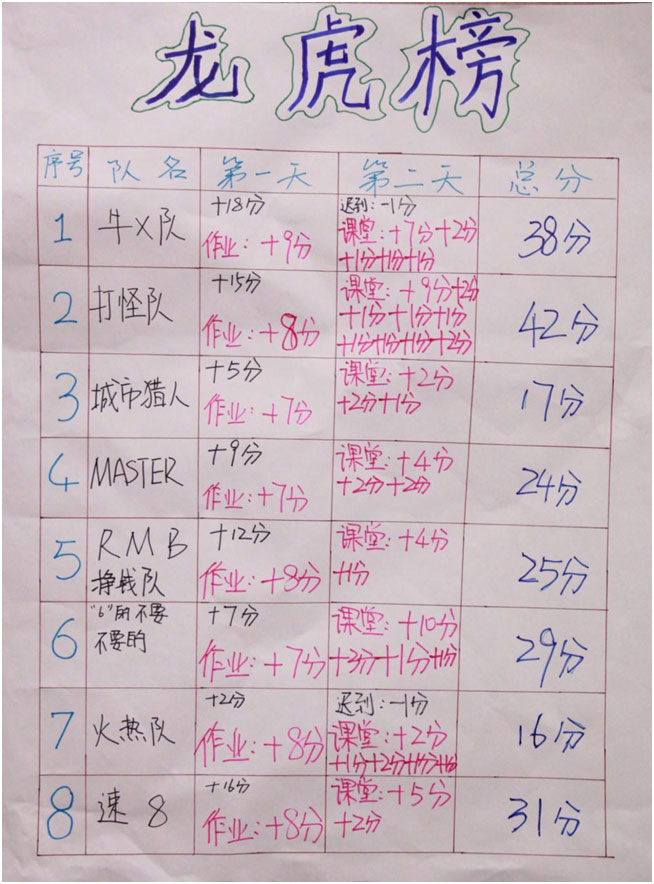 龙虎榜
序号 队名 第一天 第二天 总分
1 牛X队 +18分 迟到:-1分 38分
作业:+9分 课堂:+7分+2分
+1分+1分+1分
2 打怪队 +15分 课堂:+9分+2分 42分
作业:+8分 +1分+1分+1分
+1分+1分+1分+2分
3 城市猎人 +5分 课堂:+2分 17分
作业:+7分 +2分+1分
4 MASTER +9分 课堂:+4分 24分
作业:+7分 +2分+2分
5 RMB +12分 课堂:+4分 25分
挣钱队 作业:+8分 +1分
6 "6"的不要 +7分 课堂:+10分 29分
不要的 作业:+7分 +3分+1分+1分
7 火热队 +2分 迟到:-1分 16分
作业:+8分 课堂:+2分
+1分+2分+1分+1分
8 速8 +16分 课堂:+5分 31分
作业:+8分 +2分